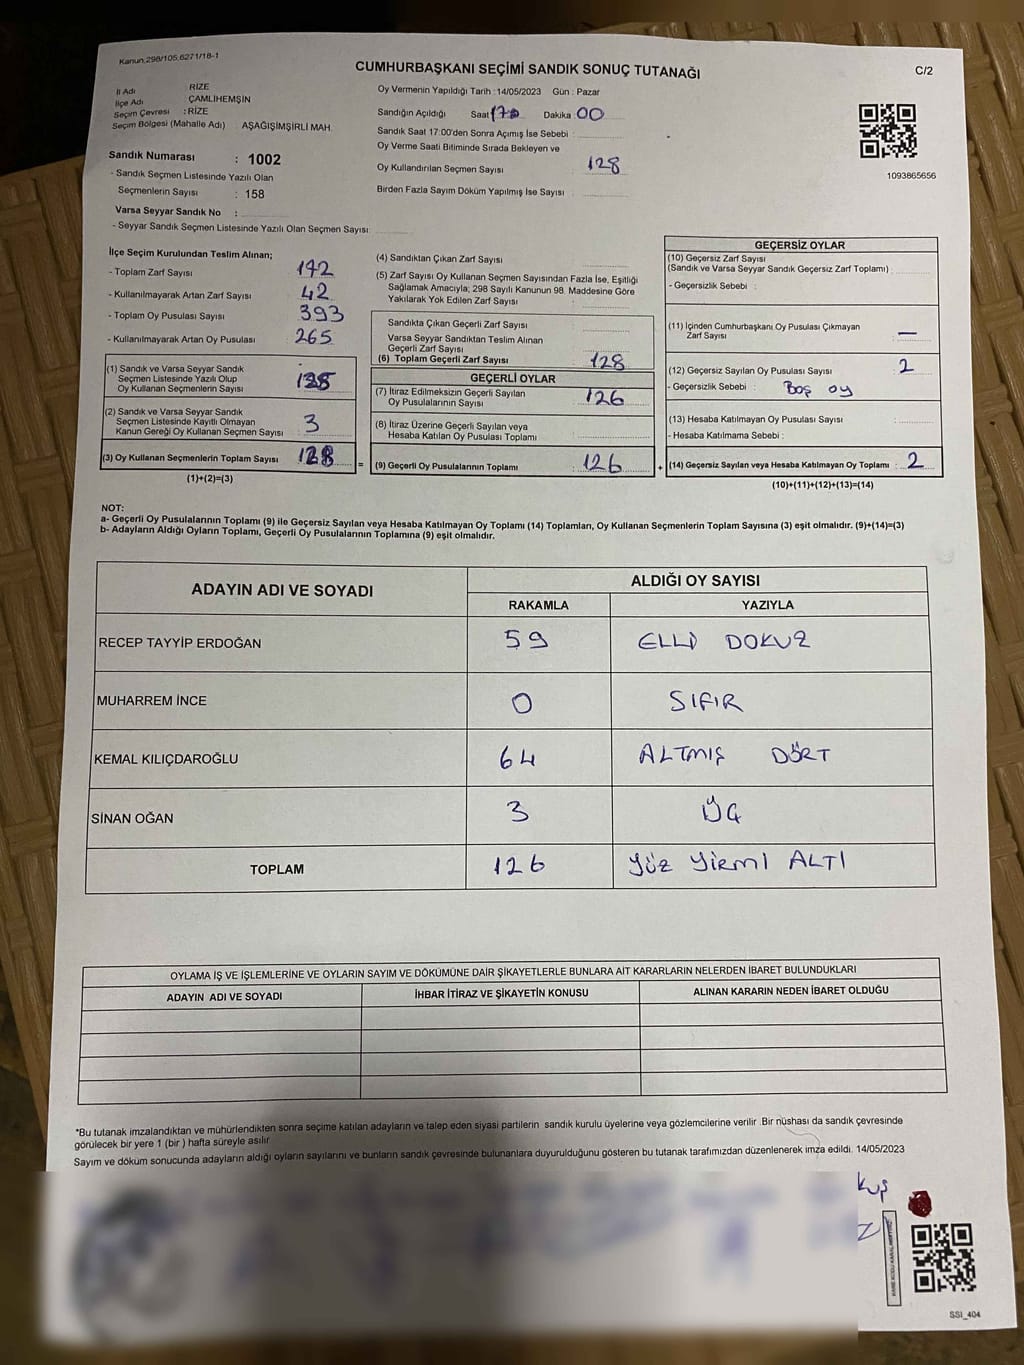 Kanun;298/105,6271/18-1
CUMHURBAŞKANI SEÇİMİ SANDIK SONUÇ TUTANAĞI
C/2
İl Adı RİZE
İlçe Adı ÇAMLIHEMŞİN
Seçim Çevresi : RİZE
Seçim Bölgesi (Mahalle Adı) AŞAĞIŞİMŞİRLİ MAH.
Sandık Numarası : 1002
- Sandık Seçmen Listesinde Yazılı Olan
Seçmenlerin Sayısı : 158
Varsa Seyyar Sandık No :
- Seyyar Sandık Seçmen Listesinde Yazılı Olan Seçmen Sayısı:
Oy Vermenin Yapıldığı Tarih : 14/05/2023 Gün : Pazar
Sandığın Açıldığı Saat Dakika : 00
Sandık Saat 17:00'den Sonra Açımış İse Sebebi :
Oy Verme Saati Bitiminde Sırada Bekleyen ve
Oy Kullandırılan Seçmen Sayısı : 128
Birden Fazla Sayım Döküm Yapılmış İse Sayısı :
1093865656
İlçe Seçim Kurulundan Teslim Alınan;
- Toplam Zarf Sayısı
- Kullanılmayarak Artan Zarf Sayısı : 42
- Toplam Oy Pusulası Sayısı : 393
- Kullanılmayarak Artan Oy Pusulası : 265
(1) Sandık ve Varsa Seyyar Sandık
Seçmen Listesinde Yazılı Olup
Oy Kullanan Seçmenlerin Sayısı
(2) Sandık ve Varsa Seyyar Sandık
Seçmen Listesinde Kayıtlı Olmayan
Kanun Gereği Oy Kullanan Seçmen Sayısı : 3
(3) Oy Kullanan Seçmenlerin Toplam Sayısı : 128
(1)+(2)=(3)
(4) Sandıktan Çıkan Zarf Sayısı :
(5) Zarf Sayısı Oy Kullanan Seçmen Sayısından Fazla İse, Eşitliği
Sağlamak Amacıyla; 298 Sayılı Kanunun 98. Maddesine Göre
Yakılarak Yok Edilen Zarf Sayısı :
Sandıkta Çıkan Geçerli Zarf Sayısı :
Varsa Seyyar Sandıktan Teslim Alınan
Geçerli Zarf Sayısı :
(6) Toplam Geçerli Zarf Sayısı : 128
GEÇERLİ OYLAR
(7) İtiraz Edilmeksizin Geçerli Sayılan
Oy Pusulalarının Sayısı : 126
(8) İtiraz Üzerine Geçerli Sayılan veya
Hesaba Katılan Oy Pusulası Toplamı :
= (9) Geçerli Oy Pusulalarının Toplamı : 126
GEÇERSİZ OYLAR
(10) Geçersiz Zarf Sayısı
(Sandık ve Varsa Seyyar Sandık Geçersiz Zarf Toplamı) :
- Geçersizlik Sebebi :
(11) İçinden Cumhurbaşkanı Oy Pusulası Çıkmayan
Zarf Sayısı : —
(12) Geçersiz Sayılan Oy Pusulası Sayısı : 2
- Geçersizlik Sebebi : Boş oy
(13) Hesaba Katılmayan Oy Pusulası Sayısı :
- Hesaba Katılmama Sebebi :
+ (14) Geçersiz Sayılan veya Hesaba Katılmayan Oy Toplamı : 2
(10)+(11)+(12)+(13)=(14)
NOT:
a- Geçerli Oy Pusulalarının Toplamı (9) ile Geçersiz Sayılan veya Hesaba Katılmayan Oy Toplamı (14) Toplamları, Oy Kullanan Seçmenlerin Toplam Sayısına (3) eşit olmalıdır. (9)+(14)=(3)
b- Adayların Aldığı Oyların Toplamı, Geçerli Oy Pusulalarının Toplamına (9) eşit olmalıdır.
ADAYIN ADI VE SOYADI
ALDIĞI OY SAYISI
RAKAMLA YAZIYLA
RECEP TAYYİP ERDOĞAN 59 ELLİ DOKUZ
MUHARREM İNCE 0 SIFIR
KEMAL KILIÇDAROĞLU 64 ALTMIŞ DÖRT
SİNAN OĞAN 3 ÜÇ
TOPLAM 126 Yüz Yirmi ALTI
OYLAMA İŞ VE İŞLEMLERİNE VE OYLARIN SAYIM VE DÖKÜMÜNE DAİR ŞİKAYETLERLE BUNLARA AİT KARARLARIN NELERDEN İBARET BULUNDUKLARI
ADAYIN ADI VE SOYADI İHBAR İTİRAZ VE ŞİKAYETİN KONUSU ALINAN KARARIN NEDEN İBARET OLDUĞU
*Bu tutanak imzalandıktan ve mühürlendikten sonra seçime katılan adayların ve talep eden siyasi partilerin sandık kurulu üyelerine veya gözlemcilerine verilir .Bir nüshası da sandık çevresinde
görülecek bir yere 1 (bir ) hafta süreyle asılır
Sayım ve döküm sonucunda adayların aldığı oyların sayılarını ve bunların sandık çevresinde bulunanlara duyurulduğunu gösteren bu tutanak tarafımızdan düzenlenerek imza edildi. 14/05/2023
Kuş
SSI_404